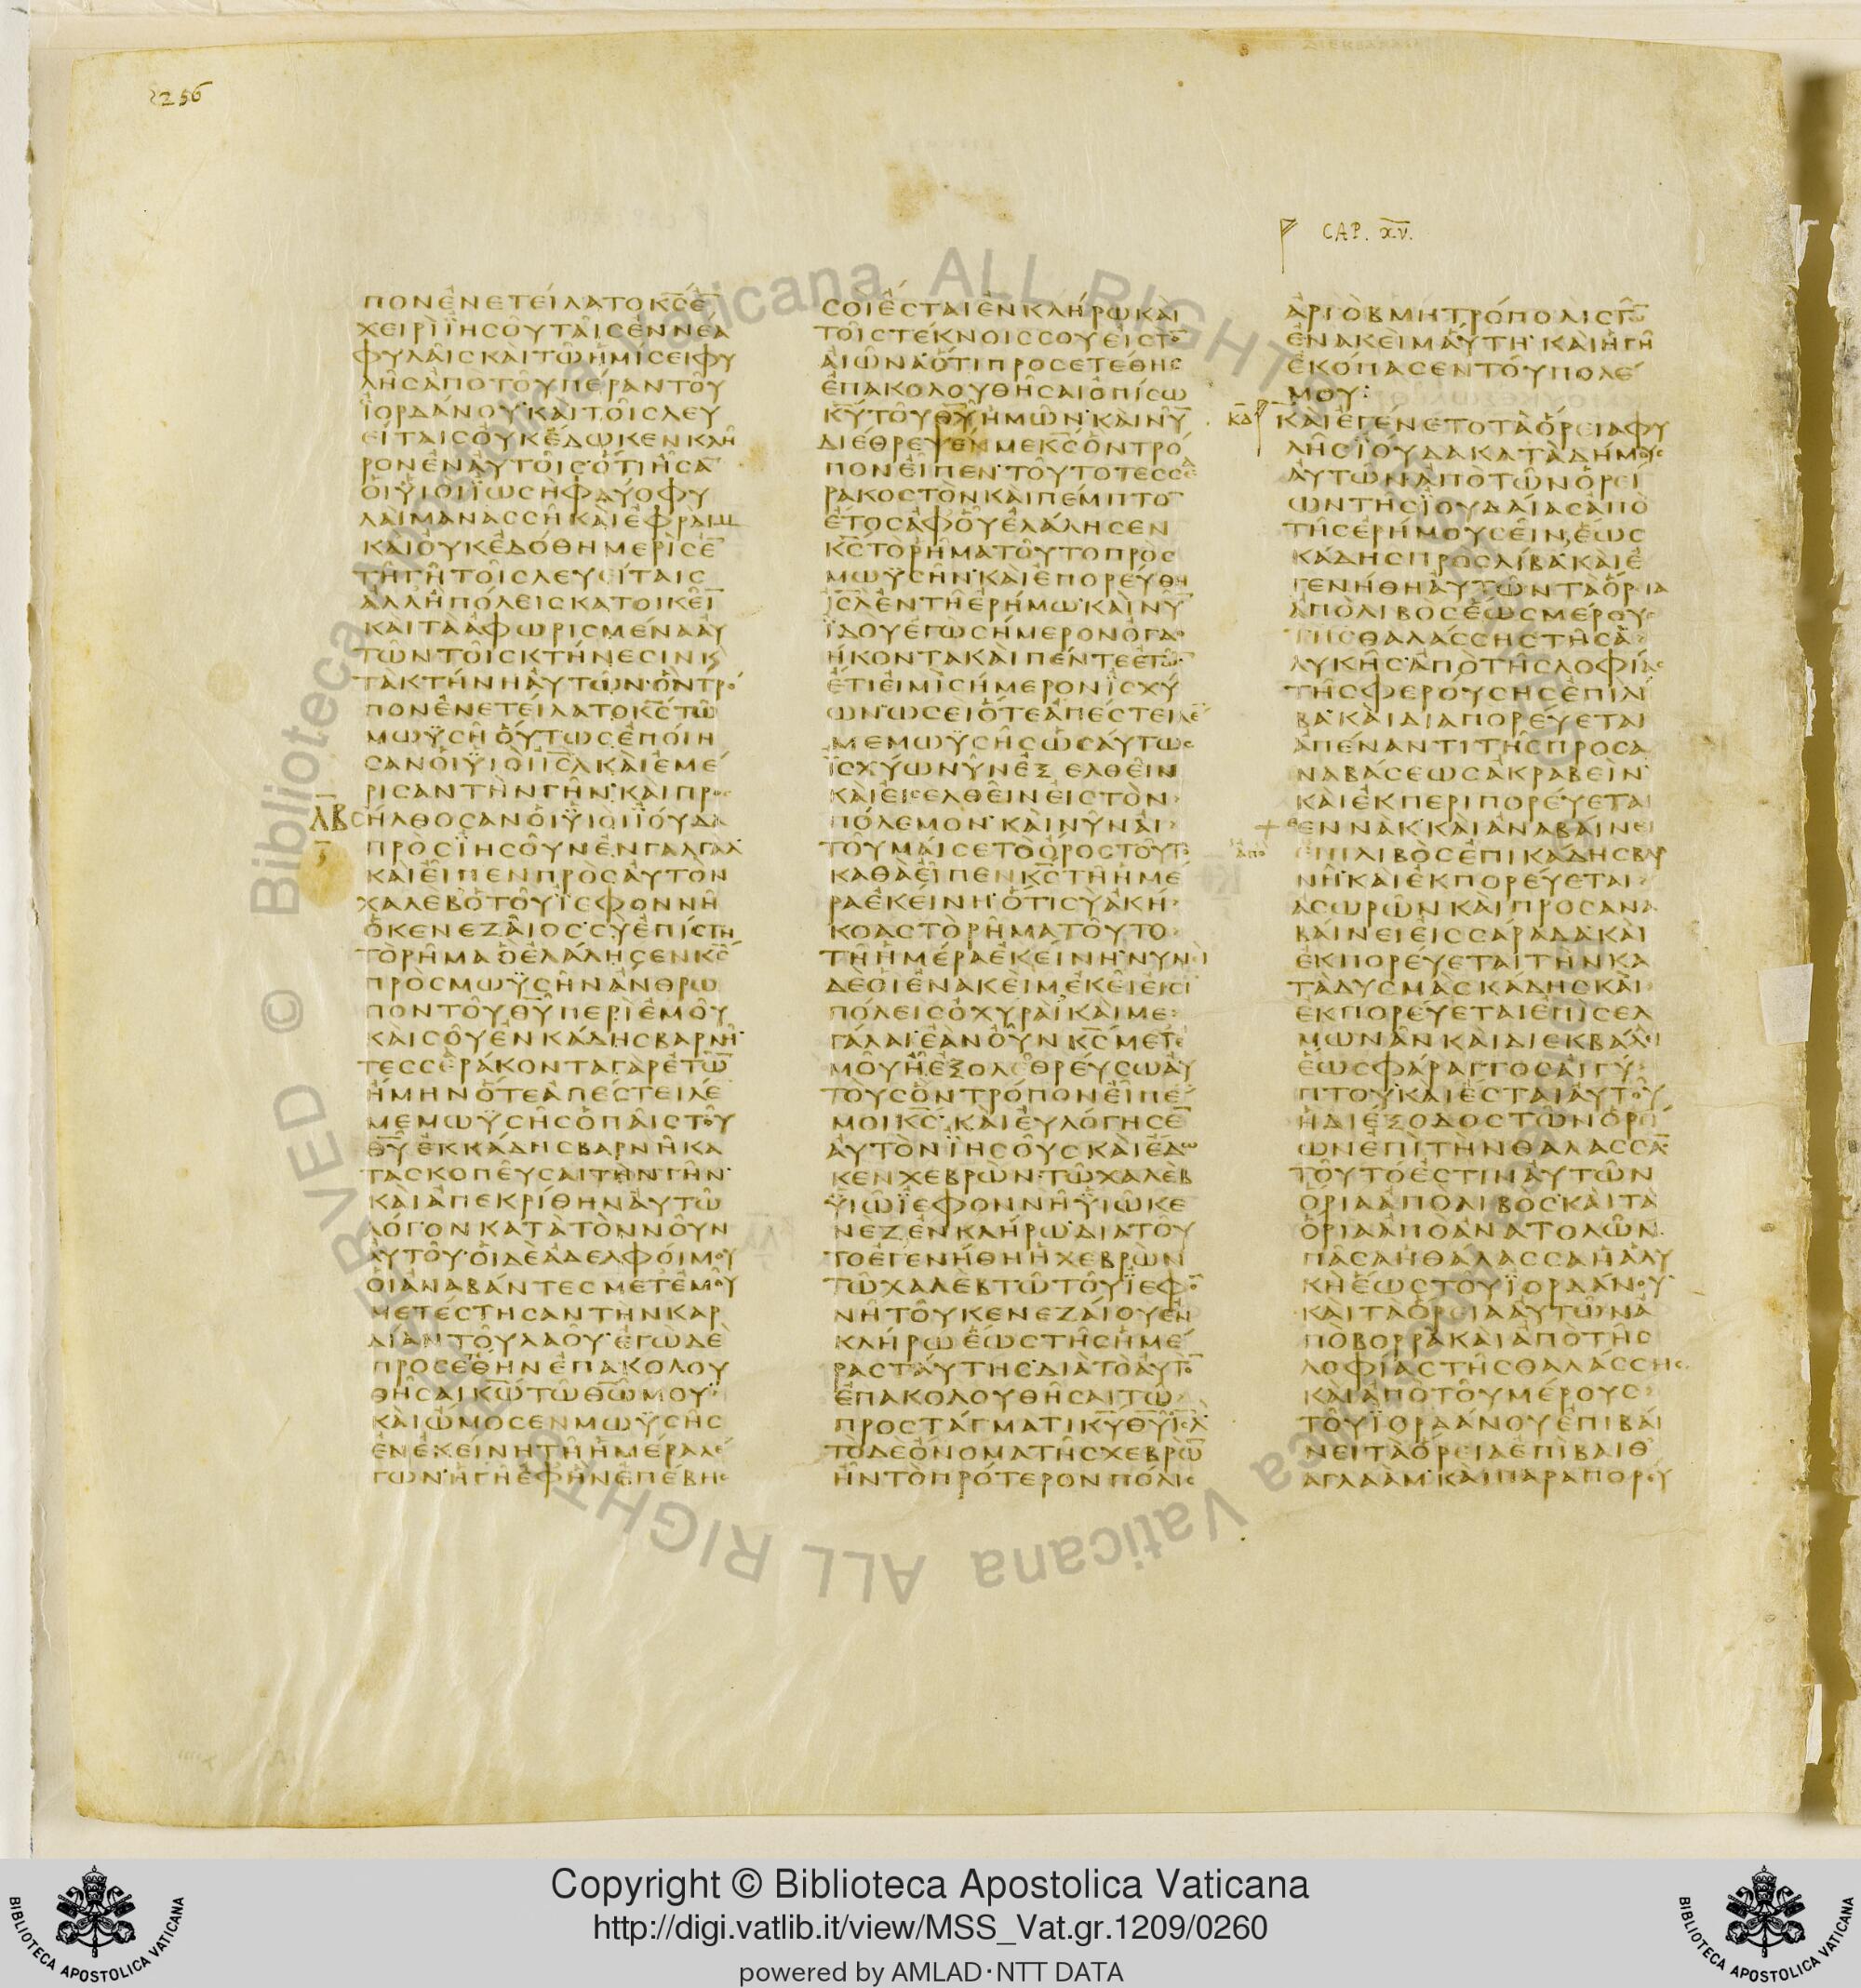 256
CAP. XV.
ΠΟΝΕΝΕΤΕΙΛΑΤΟΚ̅Σ̅Ε̅
ΧΕΙΡΙΪΗΣΟΥΤΑΙΣΕΝΝΕΑ
ΦΥΛΑΙΣΚΑΙΤΩΗΜΙΣΕΙΦΥ
ΛΗΣΑΠΟΤΟΥΠΕΡΑΝΤΟΥ
ΪΟΡΔΑΝΟΥ·ΚΑΙΤΟΙΣΛΕΥ
ΕΙΤΑΙΣΟΥΚΕΔΩΚΕΝΚΛΗ
ΡΟΝΕΝΑΥΤΟΙΣ·ΟΤΙΗΣΑ̅
ΟΙΫΙΟΙΪΩΣΗΦΔΥΟΦΥ
ΛΑΙΜΑΝΑΣΣΗΚΑΙΕΦΡΑΙΜ
ΚΑΙΟΥΚΕΔΟΘΗΜΕΡΙΣΕ̅
ΤΗΓΗΤΟΙΣΛΕΥΕΙΤΑΙΣ
ΑΛΛΗΠΟΛΕΙΣΚΑΤΟΙΚΕΙ̅
ΚΑΙΤΑΑΦΩΡΙΣΜΕΝΑΑΥ
ΤΩΝΤΟΙΣΚΤΗΝΕΣΙΝΚ
ΤΑΚΤΗΝΗΑΥΤΩΝ·ΟΝΤΡΟ
ΠΟΝΕΝΕΤΕΙΛΑΤΟΚ̅Σ̅ΤΩ
ΜΩΫΣΗΟΥΤΩΣΕΠΟΙΗ
ΣΑΝΟΙΫΙΟΙΙ̅Σ̅Λ̅ΚΑΙΕΜΕ
ΡΙΣΑΝΤΗΝΓΗΝ·ΚΑΙΠΡΟΣ
ΛΒ ΗΛΘΟΣΑΝΟΙΫΙΟΙΪΟΥΔΑ
ΠΡΟΣΪΗΣΟΥΝΕΝΓΑΛΓΑΛ
ΚΑΙΕΙΠΕΝΠΡΟΣΑΥΤΟΝ
ΧΑΛΕΒΟΤΟΥΪΕΦΟΝΝΗ
ΟΚΕΝΕΖΑΙΟΣ·ΣΥΕΠΙΣΤΗ
ΤΟΡΗΜΑΟΕΛΑΛΗΣΕΝΚ̅Σ̅
ΠΡΟΣΜΩΫΣΗΝΑΝΘΡΩ
ΠΟΝΤΟΥΘ̅Υ̅ΠΕΡΙΕΜΟΥ
ΚΑΙΣΟΥΕΝΚΑΔΗΣΒΑΡΝΗ·
ΤΕΣΣΕΡΑΚΟΝΤΑΓΑΡΕΤΩ̅
ΗΜΗΝΟΤΕΑΠΕΣΤΕΙΛΕ
ΜΕΜΩΫΣΗΣΟΠΑΙΣΤΟΥ
Θ̅Υ̅ΕΚΚΑΔΗΣΒΑΡΝΗΚΑ
ΤΑΣΚΟΠΕΥΣΑΙΤΗΝΓΗΝ·
ΚΑΙΑΠΕΚΡΙΘΗΝΑΥΤΩ
ΛΟΓΟΝΚΑΤΑΤΟΝΝΟΥΝ
ΑΥΤΟΥ·ΟΙΔΕΑΔΕΛΦΟΙΜΟΥ
ΟΙΑΝΑΒΑΝΤΕΣΜΕΤΕΜΟΥ
ΜΕΤΕΣΤΗΣΑΝΤΗΝΚΑΡ
ΔΙΑΝΤΟΥΛΑΟΥ·ΕΓΩΔΕ
ΠΡΟΣΕΘΗΝΕΠΑΚΟΛΟΥ
ΘΗΣΑΙΚ̅Ω̅ΤΩΘ̅Ω̅ΜΟΥ·
ΚΑΙΩΜΟΣΕΝΜΩΫΣΗΣ
ΕΝΕΚΕΙΝΗΤΗΗΜΕΡΑΛΕ
ΓΩΝ·ΗΓΗΕΦΗΝΕΠΕΒΗΣ
ΣΟΙΕΣΤΑΙΕΝΚΛΗΡΩΚΑΙ
ΤΟΙΣΤΕΚΝΟΙΣΣΟΥΕΙΣΤΟ̅
ΑΙΩΝΑ·ΟΤΙΠΡΟΣΕΤΕΘΗΣ
ΕΠΑΚΟΛΟΥΘΗΣΑΙΟΠΙΣΩ
Κ̅Υ̅ΤΟΥΘ̅Υ̅ΗΜΩΝ·ΚΑΙΝΥ̅
ΔΙΕΘΡΕΨΕΝΜΕΚ̅Σ̅ΟΝΤΡΟ
ΠΟΝΕΙΠΕΝ·ΤΟΥΤΟΤΕΣΣΕ
ΡΑΚΟΣΤΟΝΚΑΙΠΕΜΠΤΟ̅
ΕΤΟΣΑΦΟΥΕΛΑΛΗΣΕΝ
Κ̅Σ̅ΤΟΡΗΜΑΤΟΥΤΟΠΡΟΣ
ΜΩΫΣΗΝ·ΚΑΙΕΠΟΡΕΥΘΗ
Ι̅Σ̅Λ̅ΕΝΤΗΕΡΗΜΩ·ΚΑΙΝΥ̅
ΪΔΟΥΕΓΩΣΗΜΕΡΟΝΟΓΔΟ
ΗΚΟΝΤΑΚΑΙΠΕΝΤΕΕΤΩ̅·
ΕΤΙΕΙΜΙΣΗΜΕΡΟΝΪΣΧΥ
ΩΝ·ΩΣΕΙΟΤΕΑΠΕΣΤΕΙΛΕ
ΜΕΜΩΫΣΗΣΩΣΑΥΤΩΣ
ΪΣΧΥΩΝΥΝΕΞΕΛΘΕΙΝ
ΚΑΙΕΙΣΕΛΘΕΙΝΕΙΣΤΟΝ
ΠΟΛΕΜΟΝ·ΚΑΙΝΥΝΑΙ
ΤΟΥΜΑΙΣΕΤΟΟΡΟΣΤΟΥΤΟ
ΚΑΘΑΕΙΠΕΝΚ̅Σ̅ΤΗΗΜΕ
ΡΑΕΚΕΙΝΗ·ΟΤΙΣΥΑΚΗ
ΚΟΑΣΤΟΡΗΜΑΤΟΥΤΟ
ΤΗΗΜΕΡΑΕΚΕΙΝΗ·ΝΥΝΙ
ΔΕΟΙΕΝΑΚΕΙΜΕΚΕΙΕΙΣΙ
ΠΟΛΕΙΣΟΧΥΡΑΙΚΑΙΜΕ
ΓΑΛΑΙ·ΕΑΝΟΥΝΚ̅Σ̅ΜΕΤΕ
ΜΟΥΗΕΞΟΛΕΘΡΕΥΣΩΑΥ
ΤΟΥΣΟΝΤΡΟΠΟΝΕΙΠΕ
ΜΟΙΚ̅Σ̅·ΚΑΙΕΥΛΟΓΗΣΕ̅
ΑΥΤΟΝΪΗΣΟΥΣΚΑΙΕΔΩ
ΚΕΝΧΕΒΡΩΝ·ΤΩΧΑΛΕΒ
ΫΙΩΪΕΦΟΝΝΗΫΙΩΚΕ
ΝΕΖΕΝΚΛΗΡΩ·ΔΙΑΤΟΥ
ΤΟΕΓΕΝΗΘΗΗΧΕΒΡΩΝ
ΤΩΧΑΛΕΒΤΩΤΟΥΪΕΦΟ̅
ΝΗΤΟΥΚΕΝΕΖΑΙΟΥΕΝ
ΚΛΗΡΩΕΩΣΤΗΣΗΜΕ
ΡΑΣΤΑΥΤΗΣ·ΔΙΑΤΟΑΥΤΟ̅
ΕΠΑΚΟΛΟΥΘΗΣΑΙΤΩ
ΠΡΟΣΤΑΓΜΑΤΙΚ̅Υ̅Θ̅Υ̅Ι̅Σ̅Λ̅·
ΤΟΔΕΟΝΟΜΑΤΗΣΧΕΒΡΩ̅
ΗΝΤΟΠΡΟΤΕΡΟΝΠΟΛΙΣ
ΑΡΓΟΒΜΗΤΡΟΠΟΛΙΣΤΩ̅
ΕΝΑΚΕΙΜΑΥΤΗ·ΚΑΙΗΓΗ
ΕΚΟΠΑΣΕΝΤΟΥΠΟΛΕ
ΜΟΥ:
ΚΑΙΕΓΕΝΕΤΟΤΑΟΡΕΙΑΦΥ
ΛΗΣΪΟΥΔΑΚΑΤΑΔΗΜΟΥΣ
ΑΥΤΩΝΑΠΟΤΩΝΟΡΕΙ
ΩΝΤΗΣΪΟΥΔΑΙΑΣΑΠΟ
ΤΗΣΕΡΗΜΟΥΣΕΙΝΕΩΣ
ΚΑΔΗΣΠΡΟΣΛΙΒΑ·ΚΑΙΕ
ΓΕΝΗΘΗΑΥΤΩΝΤΑΟΡΙΑ
ΑΠΟΛΙΒΟΣΕΩΣΜΕΡΟΥΣ
ΤΗΣΘΑΛΑΣΣΗΣΤΗΣΑ
ΛΥΚΗΣ·ΑΠΟΤΗΣΛΟΦΙΑΣ
ΤΗΣΦΕΡΟΥΣΗΣΕΠΙΛΙ
ΒΑ·ΚΑΙΔΙΑΠΟΡΕΥΕΤΑΙ
ΑΠΕΝΑΝΤΙΤΗΣΠΡΟΣΑ
ΝΑΒΑΣΕΩΣΑΚΡΑΒΕΙΝ·
ΚΑΙΕΚΠΕΡΙΠΟΡΕΥΕΤΑΙ
ΣΕΝΝΑΚ·ΚΑΙΑΝΑΒΑΙΝΕΙ
ΑΠΟΛΙΒΟΣΕΠΙΚΑΔΗΣΒΑΡ
ΝΗ·ΚΑΙΕΚΠΟΡΕΥΕΤΑΙ
ΑΣΩΡΩΝΚΑΙΠΡΟΣΑΝΑ
ΒΑΙΝΕΙΕΙΣΣΑΡΑΔΑ·ΚΑΙ
ΕΚΠΟΡΕΥΕΤΑΙΤΗΝΚΑ
ΤΑΔΥΣΜΑΣΚΑΔΗΣΚΑΙ
ΕΚΠΟΡΕΥΕΤΑΙΕΠΙΣΕΛ
ΜΩΝΑΝΚΑΙΔΙΕΚΒΑΛΕΙ
ΕΩΣΦΑΡΑΓΓΟΣΑΙΓΥ
ΠΤΟΥ·ΚΑΙΕΣΤΑΙΑΥΤΟΥ
ΗΔΙΕΞΟΔΟΣΤΩΝΟΡΙ
ΩΝΕΠΙΤΗΝΘΑΛΑΣΣΑ̅·
ΤΟΥΤΟΕΣΤΙΝΑΥΤΩΝ
ΟΡΙΑΑΠΟΛΙΒΟΣ·ΚΑΙΤΑ
ΟΡΙΑΑΠΟΑΝΑΤΟΛΩΝ·
ΠΑΣΑΗΘΑΛΑΣΣΑΗΑΛΥ
ΚΗΕΩΣΤΟΥΪΟΡΔΑΝΟΥ·
ΚΑΙΤΑΟΡΕΙΑΑΥΤΩΝΑ
ΠΟΒΟΡΡΑΚΑΙΑΠΟΤΗΣ
ΛΟΦΙΑΣΤΗΣΘΑΛΑΣΣΗΣ
ΚΑΙΑΠΟΤΟΥΜΕΡΟΥΣ
ΤΟΥΪΟΡΔΑΝΟΥΕΠΙΒΑΙ
ΝΕΙΤΑΟΡΕΙΑΕΠΙΒΑΙΘ
ΑΓΛΑΑΜ·ΚΑΙΠΑΡΑΠΟΡΕΥ
Copyright © Biblioteca Apostolica Vaticana
http://digi.vatlib.it/view/MSS_Vat.gr.1209/0260
powered by AMLAD·NTT DATA